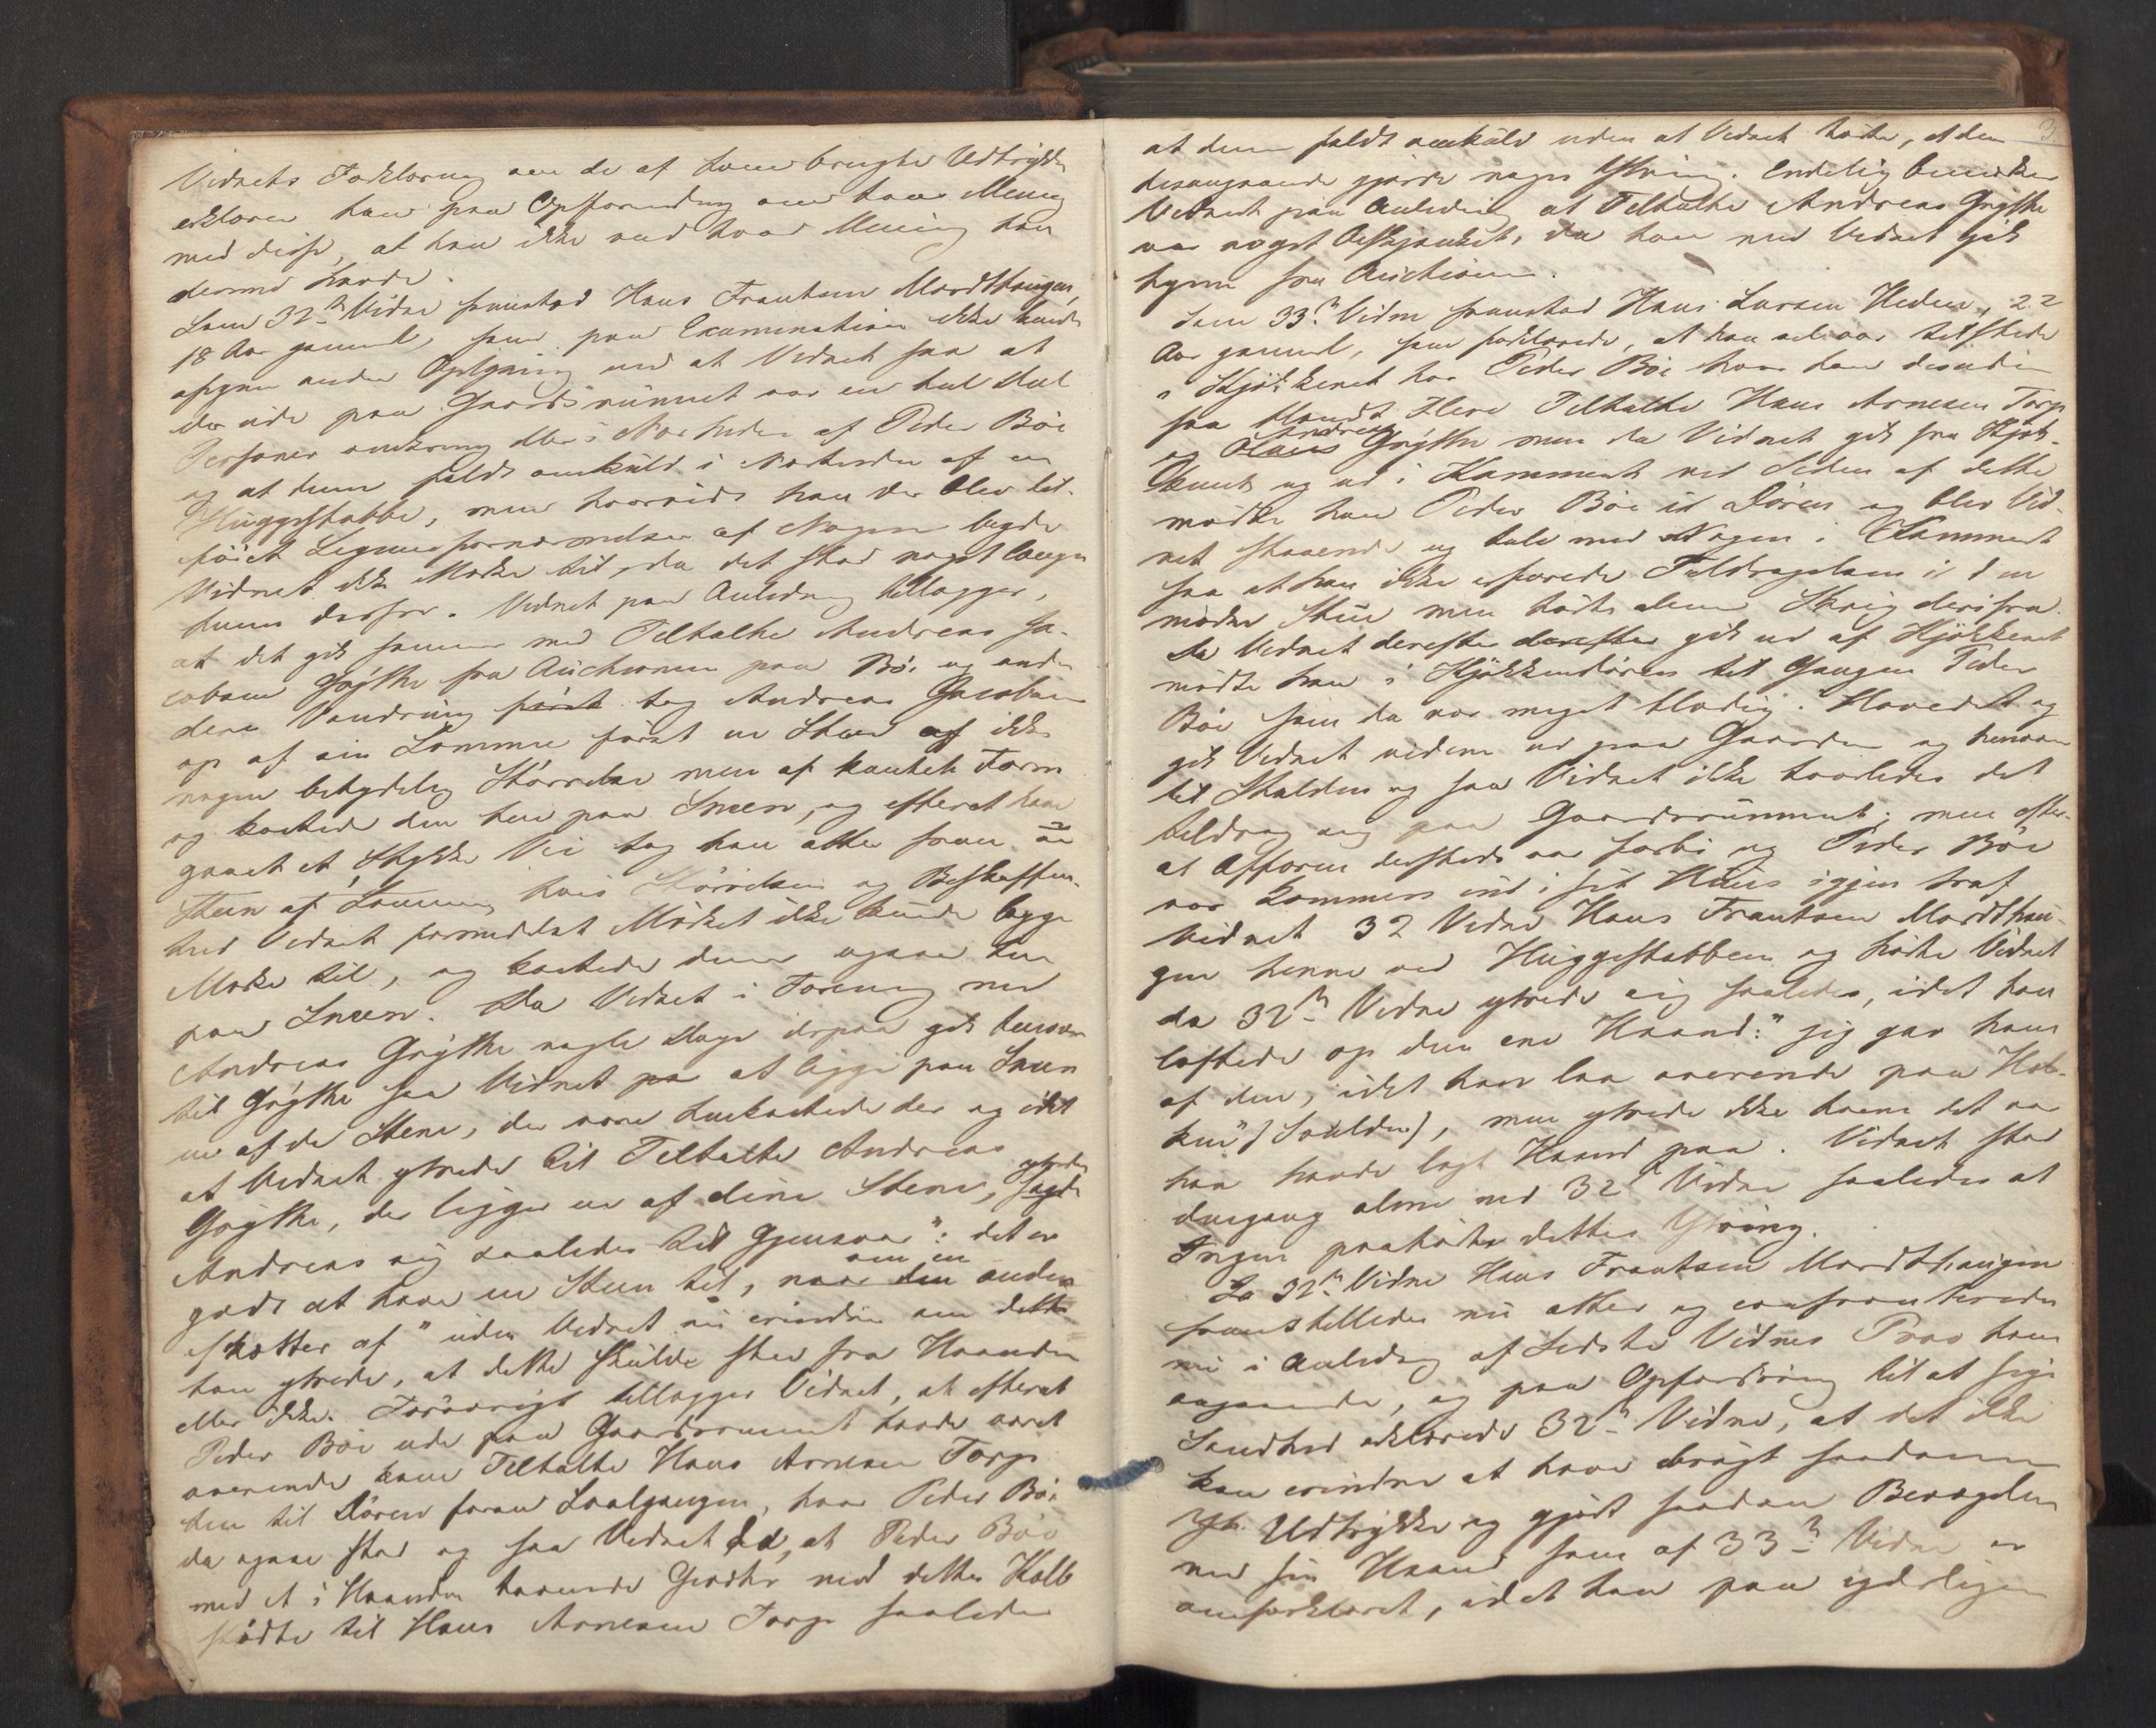 Vidnets Forklaring om de af ham brugte Udtrykke
erklærer han paa Opfordring om hans Mening
med disse, at han ikke ved hvad Mening han
dermed havde.
Som 32te Vidne fremstod Hans Frantsen Mordthaugen,
18 Aar gammel, som paa Examination ikke kunde
afgive anden Oplysning end at Vidnet saa at
der ude paa Gaardsrummet var en hel Del
Personer omkring eller i Nærheden af Peder Bøe
og at denne faldt omkuld i Nærheden af en
Huggestabbe, men hvorvidt han der blev til-
føiet Legemsfornærmelser af Nogen lagde
Vidnet ikke Mærke til, da det stod noget længer
henne derfra. Vidnet paa Anledning tillægger,
at det gik sammen med Tiltalte Andreas Ja-
cobsen Grytte fra Auctionen paa Bøe og under
deres Vandring først tog Andreas Jacobsen
op af sin Lomme først en Steen af ikke
nogen betydelig Størrelse men af kantet Form
og kastede den hen paa Sneen, og efterat have
gaaet et Stykke Vei tog han atter frem en
Steen af Lommen, hvis Størrelse og Beskaffen-
hed Vidnet formedelst Mørket ikke kunde lægge
Mærke til, og kastede denne ogsaa hen
paa Sneen. Da Vidnet i Forening med
Andreas Grytte nogle Dage derpaa gik henover
til Grytte saa Vidnet paa at ligge paa Sneen
en af de Stene, der vare henkastede der og idet
at Vidnet ytrede til Tiltalte Andreas
Grytte, der ligger en af dine Stene, sagde ytrede
Andreas sig saaledes til Gjensvar": det er
godt at have en Steen til, naar den om en anden
skotter af" uden Vidnet nu erindrer om dette
han ytrede, at dette skulde skee fra Haanden
eller ikke. Forøvrigt tillægger Vidnet, at efterat
Peder Bøe ude paa Gaardsrummet havde været
overende kom Tiltalte Hans Arnesen Torp
hen til Døren foran Svalgangen, hvor Peder Bøe
da ogsaa stod og saa Vidnet da, at Peder Bøe
med et i Haanden havende Gevær med dettes Kolb
stødte til Hans Arnesen Torp saaledes
3
at denne faldt omkuld uden at Vidnet hørte, at den
desangaaende gjorde nogen Ytring. Endelig bemærker
Vidnet paa Anledning at Tiltalte Andreas Grytte
var noget beskjænket, da han med Vidnet gik
hjem fra Auctionen.
Som 33te Vidne fremstod Hans Larsen Heden, 22
Aar gammel, som forklarede, at han var tilstede
i Kjøkkenet hos Peder Bøe hvor han desuden
saa blandt Flere Tiltalte Hans Arnesen Torp
og Hans Andreas Grytte men da Vidnet gik fra Kjøk-
kenet og ud i Kammeret ved Siden af dette
mødte han Peder Bøe i Døren og blev Vid-
net staaende og tale med Nogen i Kammeret
saa at han ikke erfarede Tildragelsen i den
nedre Stue men hørte alene Skrig derifra.
Da Vidnet derefter derefter gik ud af Kjøkkenet
mødte han i Kjøkkendøren til Gangen Peder
Bøe som da var meget blodig i Hovedet og
gik Vidnet videre ud paa Gaarden og henover
til Stalden og saa Vidnet ikke hvorledes det
tildrog sig paa Gaardsrummet; men efter-
at Affæren dersteds var forbi og Peder Bøe
var kommen ind i sit Huus igjen traf
Vidnet 32 Vidne Hans Frantsen Mordthau-
gen henne ved Huggestabben og hørte Vidnet
da 32te Vidne ytrede sig saaledes, idet han
løftede op den ene Haand: "jeg gav ham
af den, idet han laa overende paa Hol-
ken" (Soulden), men ytrede ikke hvem det var
han havde lagt Haand paa. Vidnet stod
dengang alene med 32te Vidne saaledes at
Ingen paahørte dettes Ytring.
Da 32te Vidne Hans Frantsen Mordthaugen
fremstilledes nu atter og confronteredes
nu i Anledning af Sidste Vidnes Prov ham
angaaende, og paa Opfordring til at sige
Sandhed erklærede 32te Vidne, at det ikke
kan erindre at have brugt saadanne
Yt. Udtrykke og gjort saadan Bevægelse
med sin Haand som af 33te Vidne er
omforklaret, idet han paa yderligere